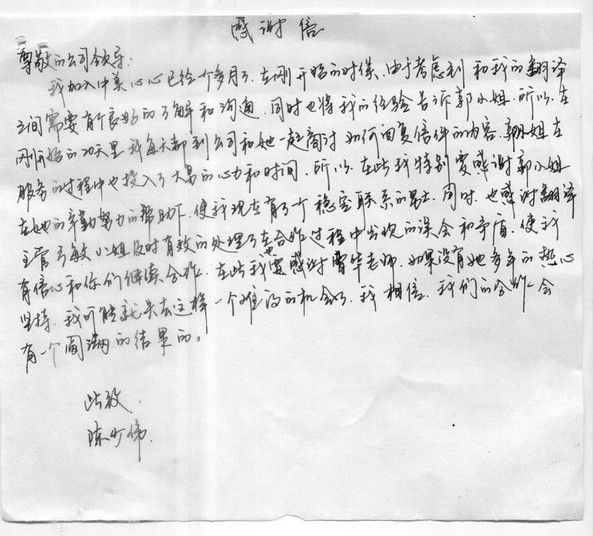 感谢信
尊敬的公司领导:
我加入中美心心已经个多月了,在刚开始的时候,由于考虑到和我的翻译
之间需要有个良好的了解和沟通,同时也将我的经验告诉郭小姐,所以,在
刚开始的20天里,我每天都到公司和她一起商讨如何回复信件的内容,郭小姐在
服务的过程中也投入了大量的心力和时间,所以,在此我特别要感谢郭小姐
在她的辛勤努力的帮助下,使我现在有了个稳定联系的男士,同时,也感谢翻译
主管 敏小姐及时有效的处理了在合作过程中出现的误会和矛盾,使我
有信心和你们继续合作,在此我也要感谢曹华老师,如果没有她多年的热心
坚持,我可能就失去这样一个难得的机会了,我相信,我们的合作一会
有一个圆满的结果的。
此致
陈